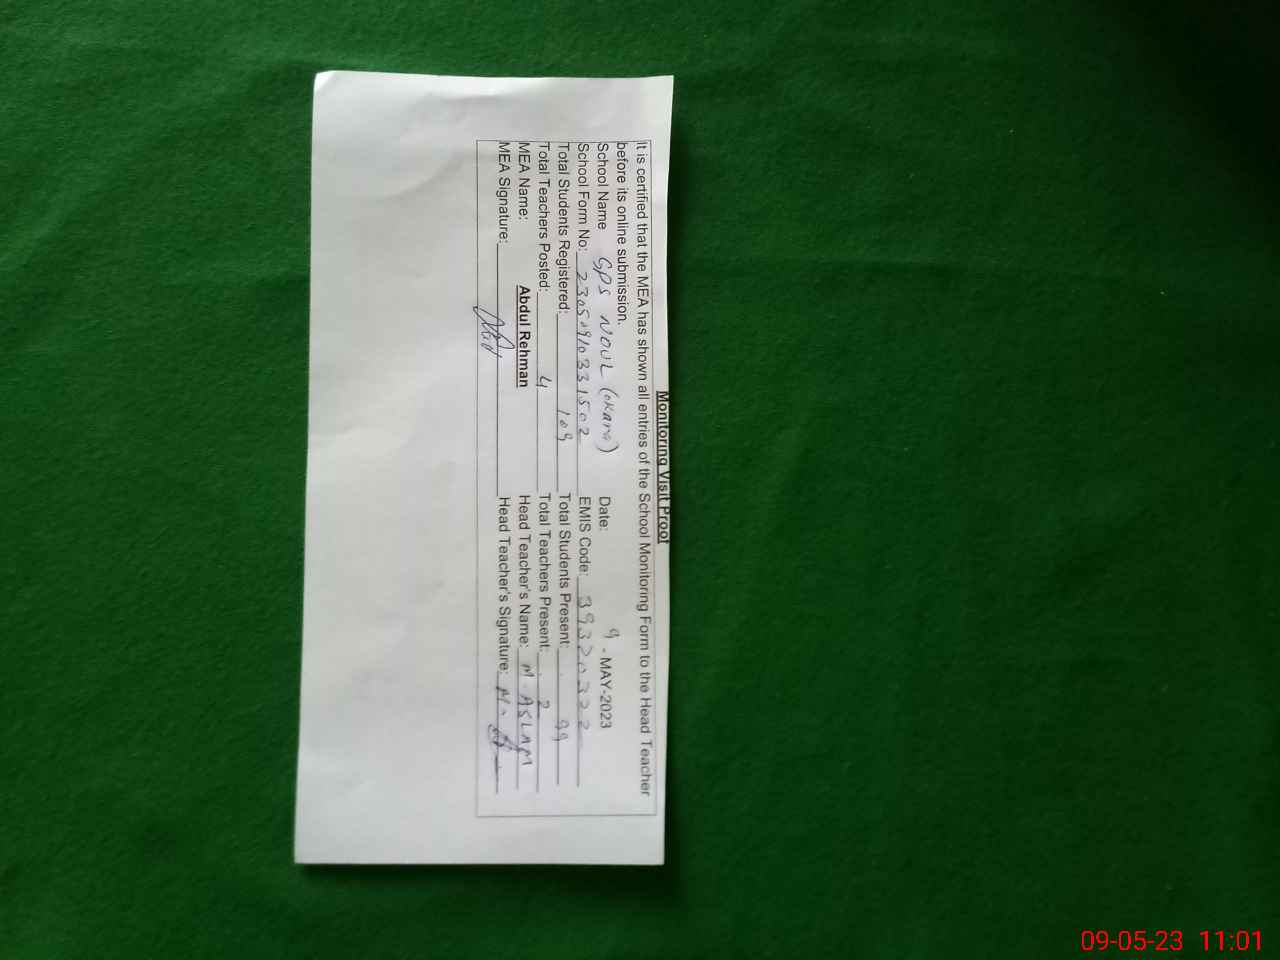 Monitoring Visit Proof
It is certified that the MEA has shown all entries of the School Monitoring Form to the Head Teacher
before its online submission.
School Name GPS NOUL (okara) Date: 9 - MAY-2023
School Form No: 23050910331502 EMIS Code: 39320322
Total Students Registered: 109 Total Students Present: 99
Total Teachers Posted: 4 Total Teachers Present: 2
MEA Name: Abdul Rehman Head Teacher's Name: M. ASLAM
MEA Signature: Head Teacher's Signature:
09-05-23 11:01